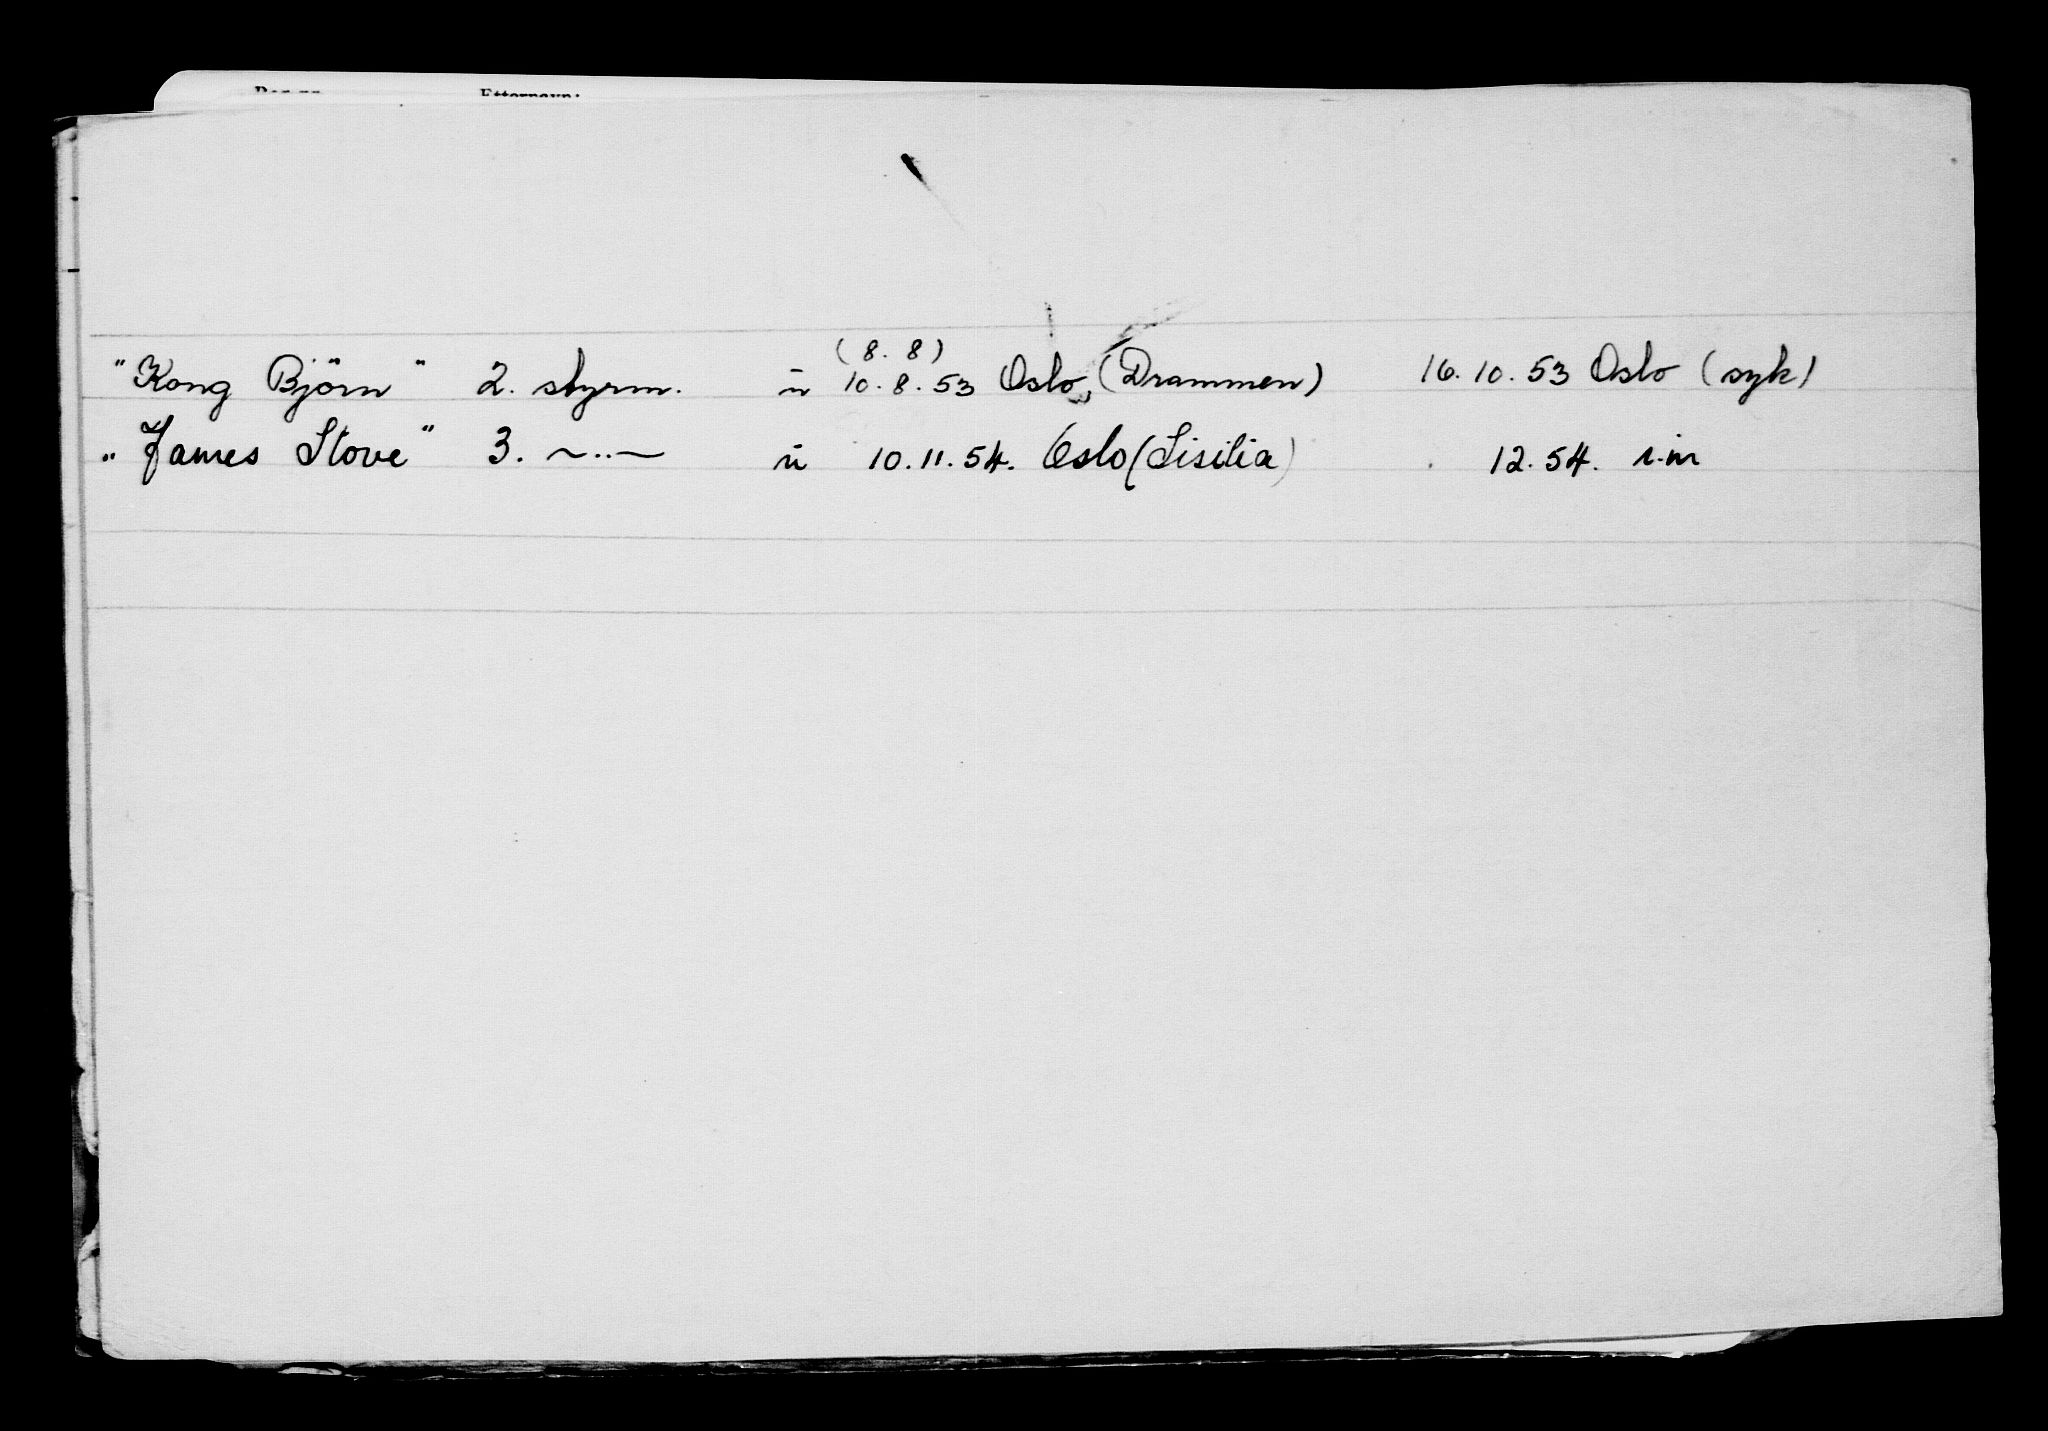 (8. 8)
"Kong Björn" 2. styrm. ū 10.8.53 Oslo (Drammen) 16.10.53 Oslo (syk)
"James Stove" 3. ~..~ ū 10.11.54. Oslo (Sisilia) 12.54.